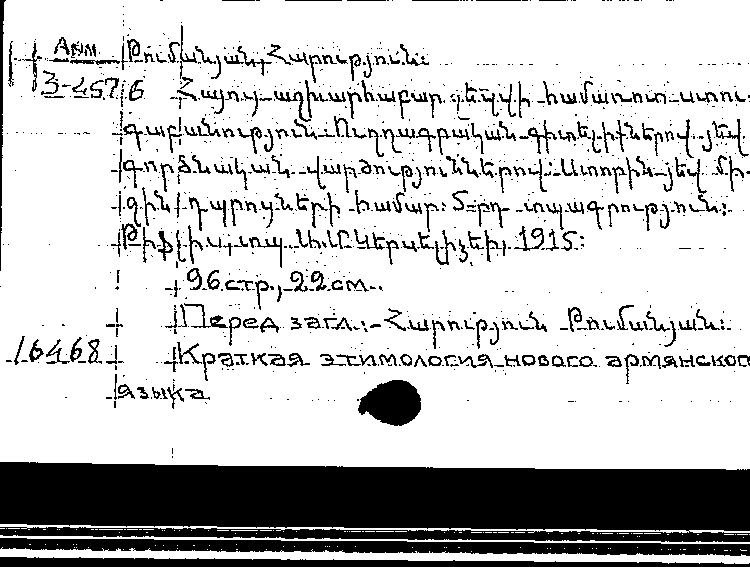 Арм Թումանյան, Հարություն:
3-2576 Հայոց աշխարհաբար լեզվի համառոտ ստու-
գաբանություն Ուղղագրական գիտելիքներով յեվ
գործնական վարժություններով: Ստորին յեվ մի-
ջին դպրոցների համար: 5-րդ տպագրություն:
Թիֆլիս, տպ. Ն. Մ. Կերսելիձեյի, 1915:
96 стр., 22 см.
Перед загл.:- Հարություն Թումանյան:
16468 Краткая этимология нового армянского
языка